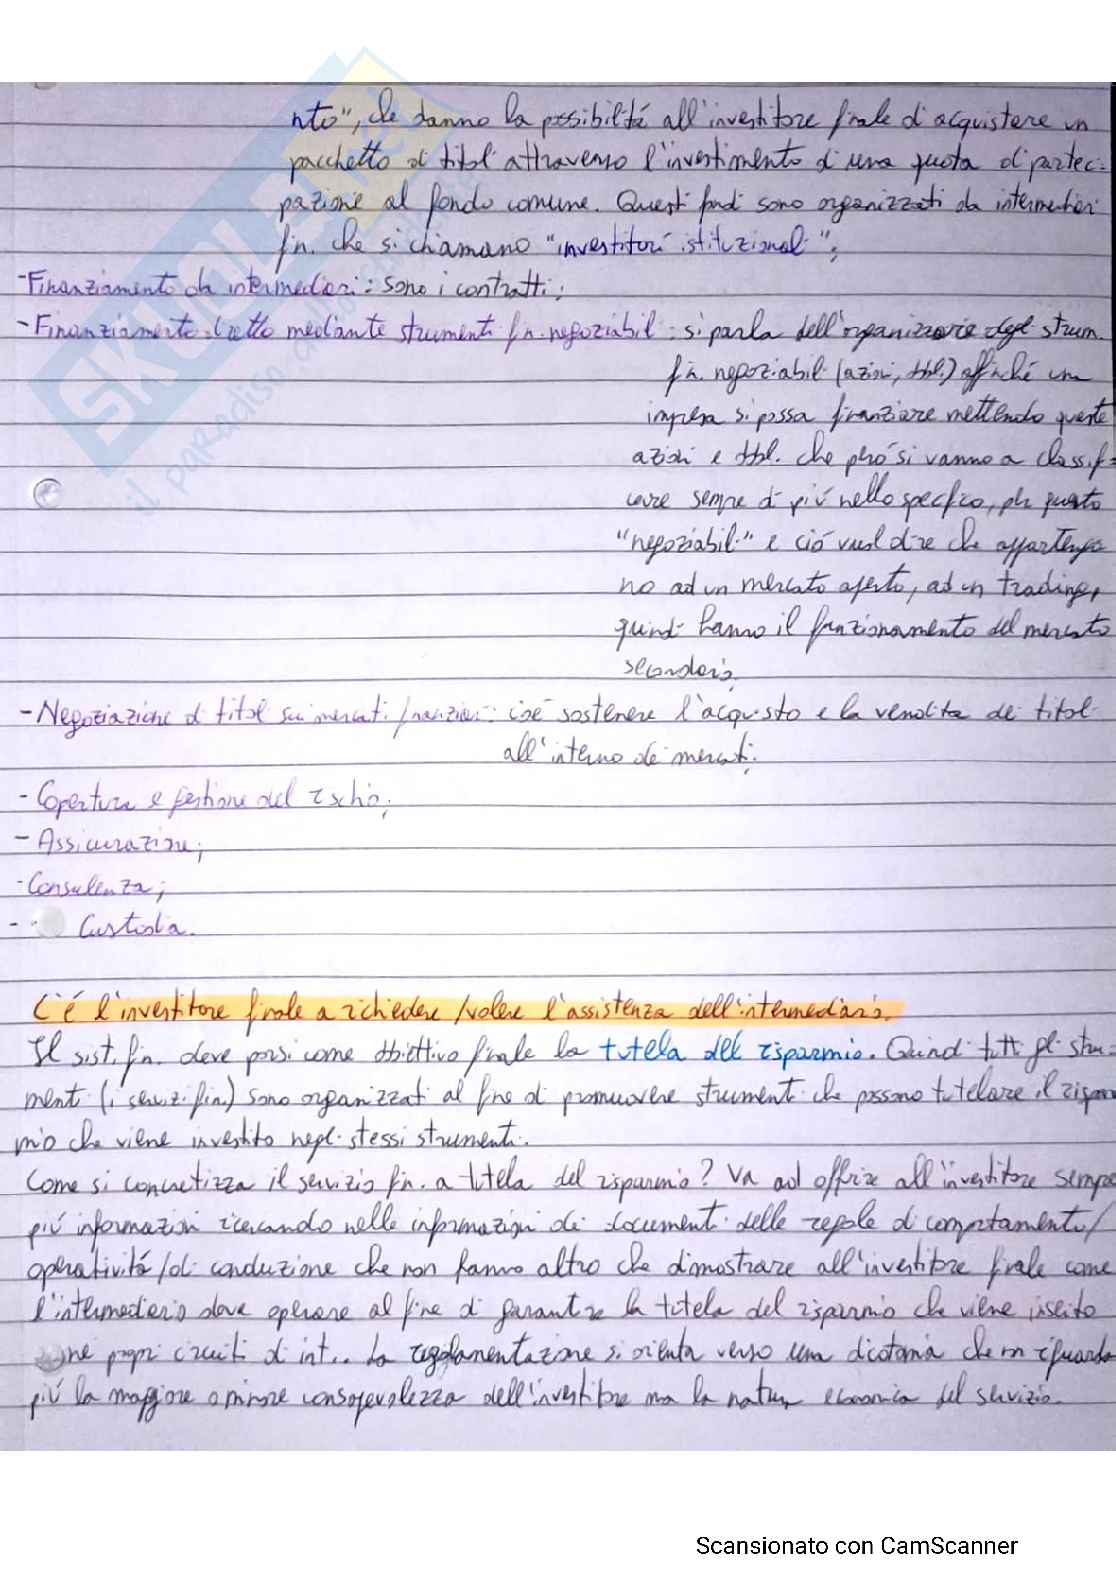 nto", che danno la possibilità all'investitore finale di acquistare un
pacchetto di titoli attraverso l'investimento di una quota di partec=
pazione al fondo comune. Questi fondi sono organizzati da intermediari
fin. che si chiamano "investitori istituzionali";
-Finanziamento da intermediari: sono i contratti;
-Finanziamento diretto mediante strumenti fin. negoziabili: si parla dell'organizzazione degli strum.
fin. negoziabili (azioni, obbl.) affinché un
impresa si possa finanziare mettendo queste
azioni e obbl. che però si vanno a classifi=
care sempre di più nello specifico, per questo
"negoziabili" e ciò vuol dire che appartengo
no ad un mercato aperto, ad un trading,
quindi hanno il funzionamento del mercato
secondario.
-Negoziazione di titoli sui mercati finanziari: cioè sostenere l'acquisto e la vendita dei titoli
all'interno dei mercati;
-Copertura e gestione del rischio;
-Assicurazione;
-Consulenza;
- Custodia.
C'è l'investitore finale a richiedere/volere l'assistenza dell'intermediario.
Il sist. fin. deve porsi come obiettivo finale la tutela del risparmio. Quindi tutti gli stru=
menti (i servizi fin.) sono organizzati al fine di promuovere strumenti che possano tutelare il rispar
mio che viene investito negli stessi strumenti.
Come si concretizza il servizio fin. a tutela del risparmio? Va ad offrire all'investitore sempre
più informazioni ricercando nelle informazioni dei documenti delle regole di comportamento/
operatività/di conduzione che non fanno altro che dimostrare all'investitore finale come
l'intermediario deve operare al fine di garantire la tutela del risparmio che viene inserito
nei propri circuiti di int.. La regolamentazione si orienta verso una dicotomia che non riguarda
più la maggiore o minore consapevolezza dell'investitore ma la natura economica del servizio.
SKUOLA.net
il paradiso dello studente
Scansionato con CamScanner